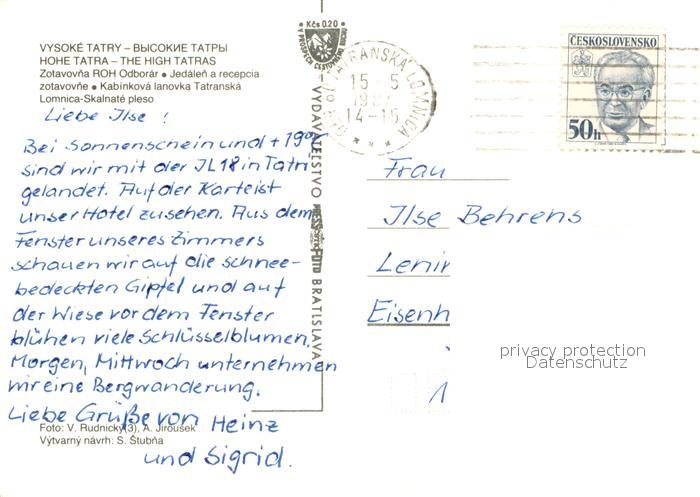 VYSOKÉ TATRY – ВЫСОКИЕ ТАТРЫ
HOHE TATRA – THE HIGH TATRAS
Zotavovňa ROH Odborár • Jedáleň a recepcia
zotavovňe • Kabínková lanovka Tatranská
Lomnica-Skalnaté pleso
Liebe Ilse!
Bei Sonnenschein und +19°
sind wir mit der JL 18 in Tatri
gelandet. Auf der Karte ist
unser Hotel zusehen. Aus dem
Fenster unseres Zimmers
schauen wir auf die schnee-
bedeckten Gipfel und auf
der Wiese vor dem Fenster
blühen viele Schlüsselblumen.
Morgen, Mittwoch unternehmen
wir eine Bergwanderung.
Liebe Grüße von Heinz
und Sigrid.
Foto: V. Rudnický (3), A. Jiroušek
Výtvarný návrh: S. Štubňa
Kčs 0.20
VYDAVATEĽSTVO PRESSFOTO BRATISLAVA
TATRANSKÁ LOMNICA
15-5
14-15
ČESKOSLOVENSKO
50h
Frau
Ilse Behrens
Lenin
Eisenh
1
privacy protection
Datenschutz